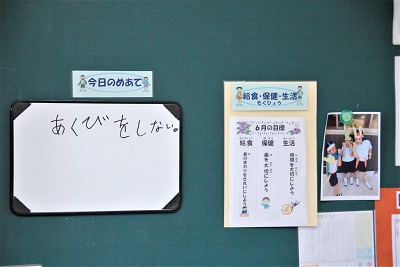 今日のめあて
あくびをしない。
給食・保健・生活
もくひょう
6月の目標
給食 保健 生活
時間を大切にしよう
歯を大切にしよう